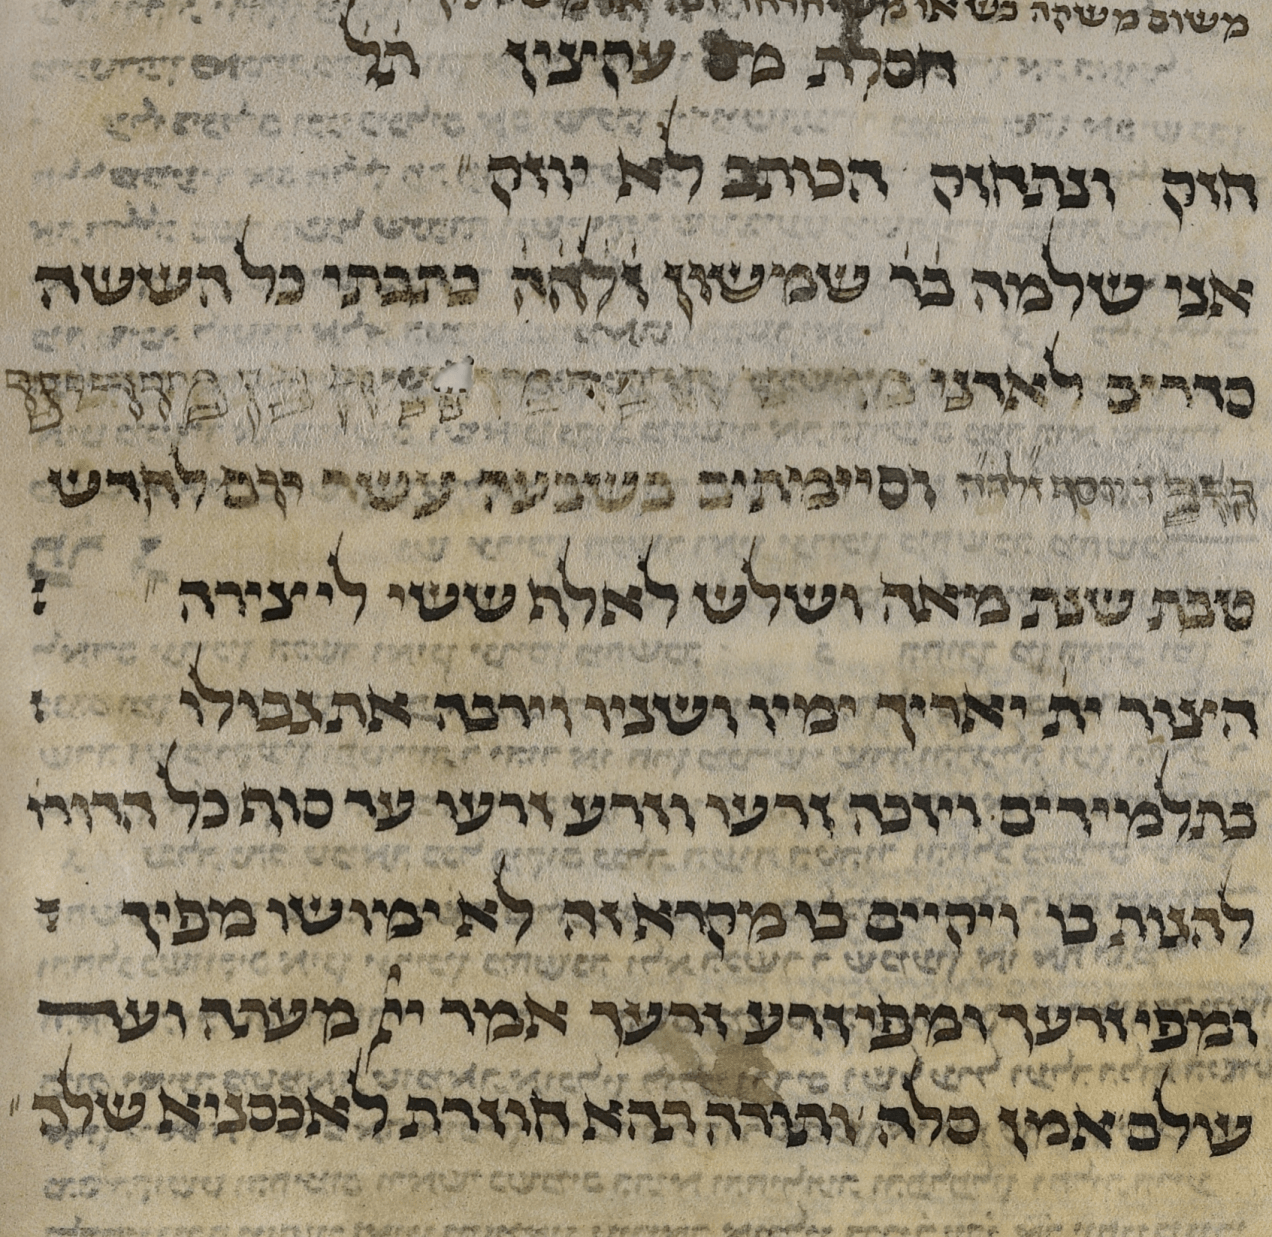 משום משקה
חסלת מס עקצין תל
חזק ונתחזק הכותב לא יוזק
אני שלמה בר שמשון זלהה כתבתי כל הששה
סדרים לאדני
וסיימתים בשבעה עשר יום לחדש
טבת שנת מאה ושלש לאלף ששי ליצירה
הצור ית יאריך ימיו ושניו וירבה את גבולו
בתלמידים ויזכה זרעו וזרע זרעו עד סוף כל הדורות
להגות בו ויקיים בו מקרא זה לא ימושו מפיך
ומפי זרעך ומפי זרע זרעך אמר יי מעתה ועד
עולם אמן סלה ותורה תהא חוזרת לאכסניא שלך